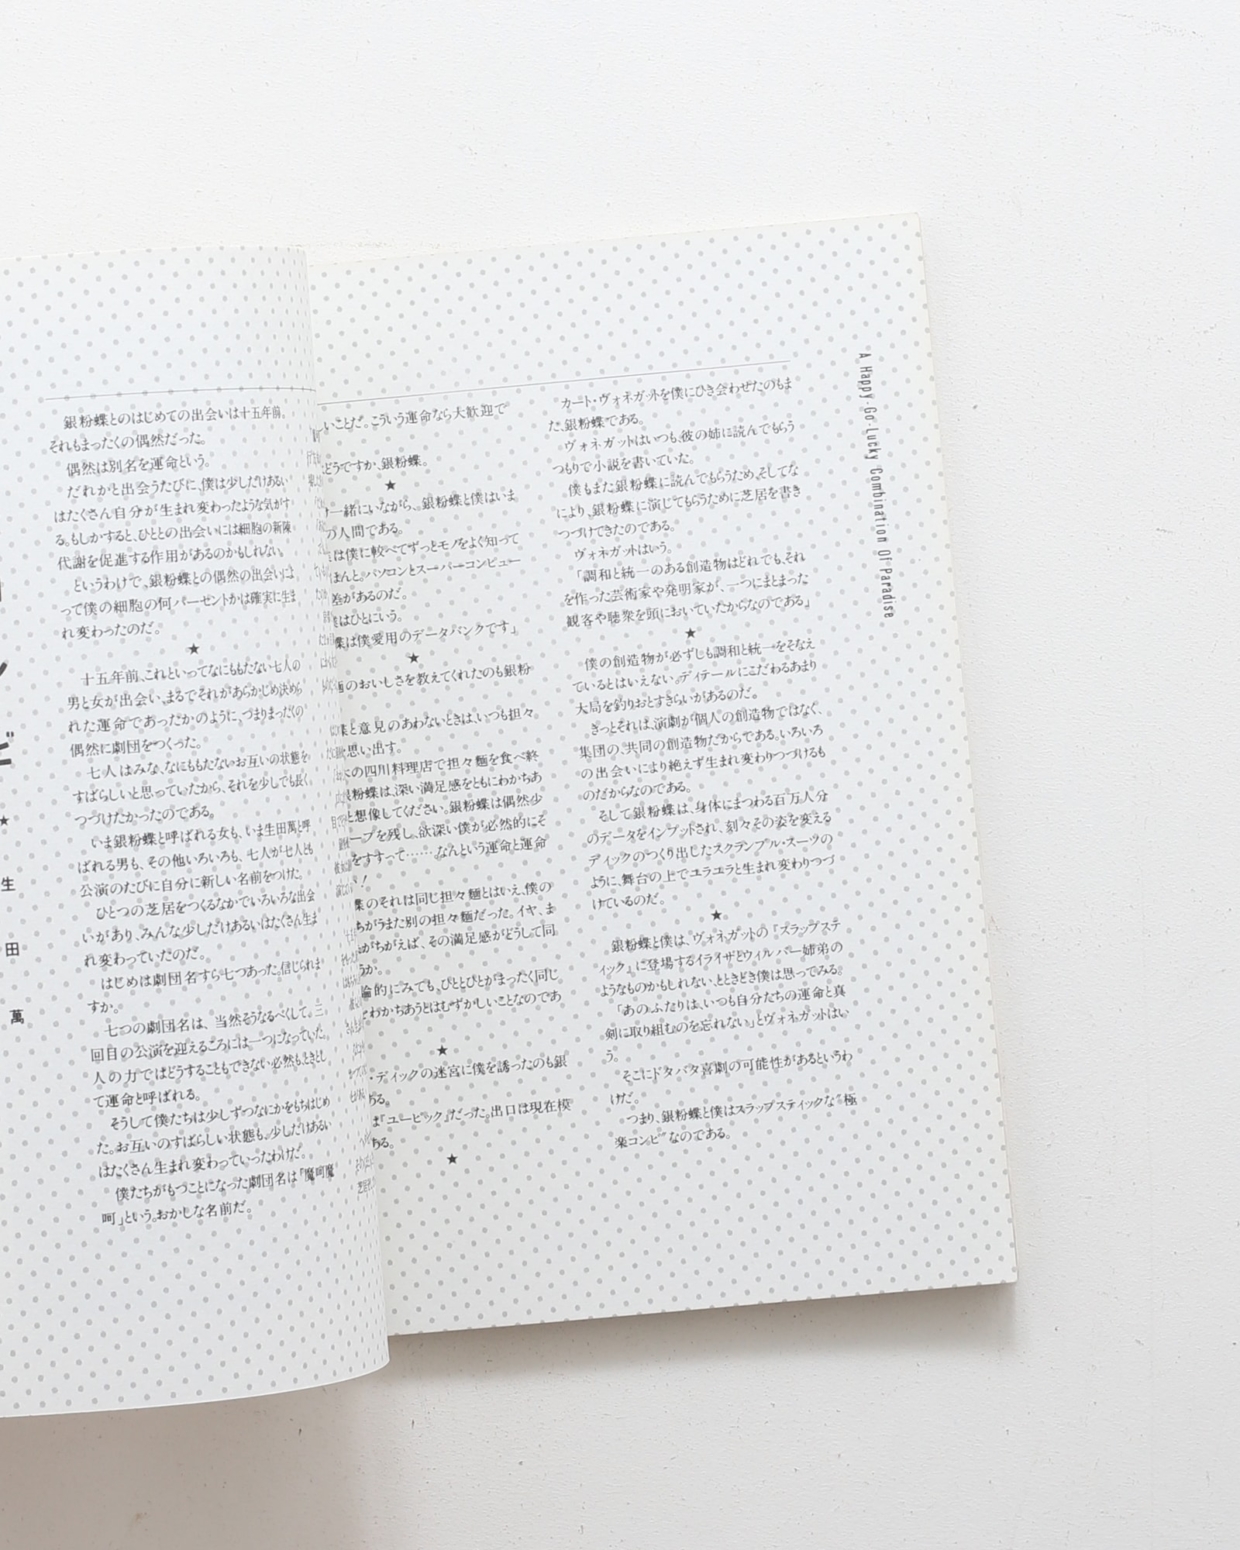 ン
ビ
★
生
田
萬
銀粉蝶とのはじめての出会いは十五年前。
それもまったくの偶然だった。
偶然は別名を運命という。
だれかと出会うたびに、僕は少しだけあるい
はたくさん自分が生まれ変わったような気がす
る。もしかすると、ひととの出会いには細胞の新陳
代謝を促進する作用があるのかもしれない。
というわけで、銀粉蝶との偶然の出会いによ
って僕の細胞の何パーセントかは確実に生ま
れ変わったのだ。
★
十五年前、これといってなにももたない七人の
男と女が出会い、まるでそれがあらかじめ決めら
れた運命であったかのように、つまりまったくの
偶然に劇団をつくった。
七人はみな、なにももたないお互いの状態を
すばらしいと思っていたから、それを少しでも長く
つづけたかったのである。
いま銀粉蝶と呼ばれる女も、いま生田萬と呼
ばれる男も、その他いろいろも、七人が七人とも
公演のたびに自分に新しい名前をつけた。
ひとつの芝居をつくるなかでいろいろな出会
いがあり、みんな少しだけあるいはたくさん生ま
れ変わっていたのだ。
はじめは劇団名すら七つあった。信じられま
すか。
七つの劇団名は、当然そうなるべくして、三
回目の公演を迎えるころには一つになっていた。
人の力ではどうすることもできない必然もときとし
て運命と呼ばれる。
そうして僕たちは少しずつなにかをもちはじめ
た。お互いのすばらしい状態も、少しだけあるい
はたくさん生まれ変わっていったわけだ。
僕たちがもつことになった劇団名は「魔呵魔
呵」という。おかしな名前だ。
いことだ。こういう運命なら大歓迎で
どうですか、銀粉蝶。
★
一緒にいながら、銀粉蝶と僕はいま
人間である。
は僕に較べてずっとモノをよく知って
ほんと。パソコンとスーパーコンピュー
差があるのだ。
僕はひとにいう。
蝶は僕愛用のデータバンクです」
★
麺のおいしさを教えてくれたのも銀粉
蝶と意見のあわないときは、いつも担々
思い出す。
の四川料理店で担々麺を食べ終
粉蝶は、深い満足感をともにわかちあ
と想像してください。銀粉蝶は偶然少
ープを残し、欲深い僕が必然的にそ
をすすって……なんという運命と運命
！
蝶のそれは同じ担々麺とはいえ、僕の
ちがうまた別の担々麺だった。イヤ、ま
がちがえば、その満足感がどうして同
うか。
論的にみても、ひととひとがまったく同じ
わかちあうとはむずかしいことなのであ
★
・ディックの迷宮に僕を誘ったのも銀
ある。
は『ユービック』だった。出口は現在模
ある。
★
カート・ヴォネガットを僕にひき会わせたのもま
た、銀粉蝶である。
ヴォネガットはいつも、彼の姉に読んでもらう
つもりで小説を書いていた。
僕もまた銀粉蝶に読んでもらうため、そしてな
により、銀粉蝶に演じてもらうために芝居を書き
つづけてきたのである。
ヴォネガットはいう。
「調和と統一のある創造物はどれでも、それ
を作った芸術家や発明家が、一つにまとまった
観客や聴衆を頭においていたからなのである」
★
僕の創造物が必ずしも調和と統一をそなえ
ているとはいえない。ディテールにこだわるあまり
大局を釣りおとすきらいがあるのだ。
きっとそれは、演劇が個人の創造物ではなく、
集団の、共同の創造物だからである。いろいろ
の出会いにより絶えず生まれ変わりつづけるも
のだからなのである。
そして銀粉蝶は、身体にまつわる百万人分
のデータをインプットされ、刻々その姿を変える
ディックのつくり出したスクランブル・スーツの
ように、舞台の上でユラユラと生まれ変わりつづ
けているのだ。
★
銀粉蝶と僕は、ヴォネガットの『スラップステ
ィック』に登場するイライザとウィルバー姉弟の
ようなものかもしれない、とときどき僕は思ってみる。
「あのふたりは、いつも自分たちの運命と真
剣に取り組むのを忘れない」とヴォネガットはい
う。
そこにドタバタ喜劇の可能性があるというわ
けだ。
つまり、銀粉蝶と僕はスラップスティックな“極
楽コンビ”なのである。
A Happy-Go-Lucky Combination Of Paradise